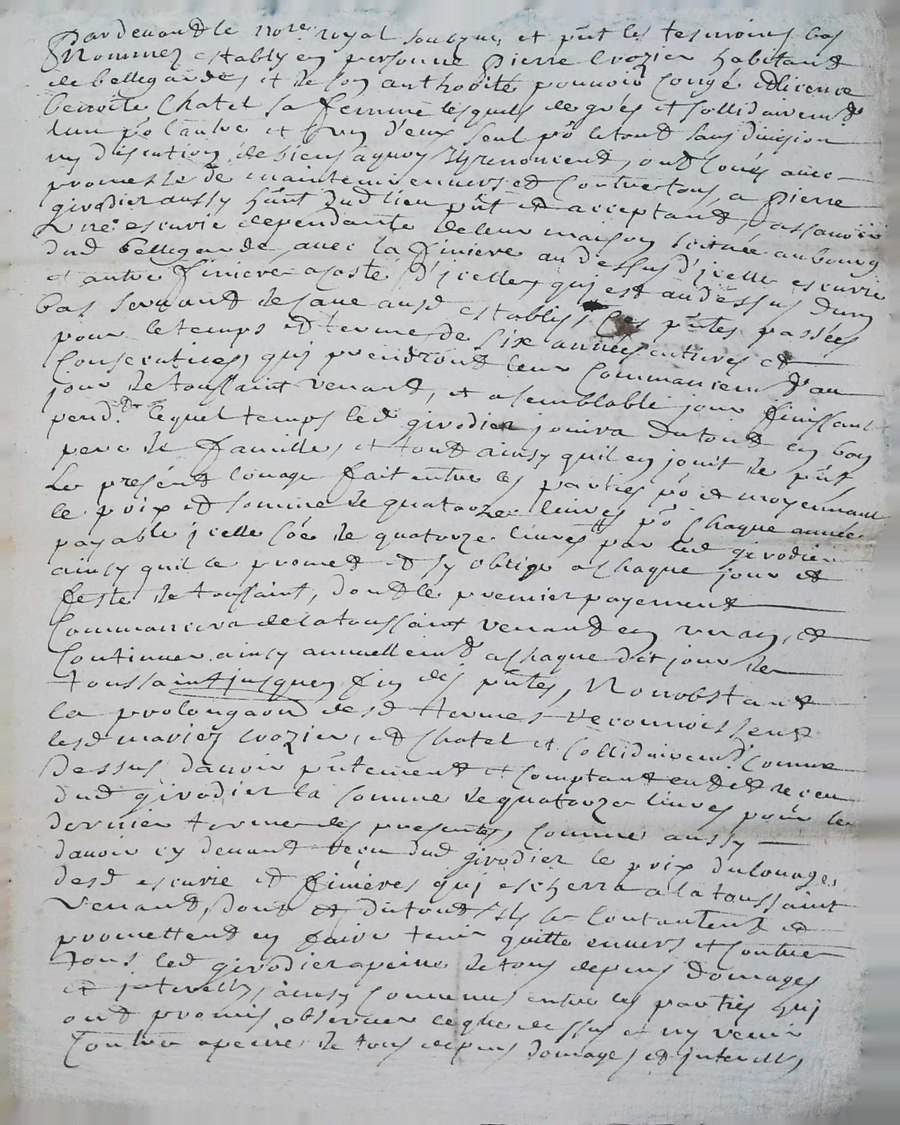 Pardevant le no.re royal soubzné et pnt les tesmoins bas
Nommez estably en personne pierre crozier habitant
de bellegardes et de son authhorite pouvoir congé et licence
benoite Chatel sa femme lesquels de gres et sollidairem.t
lun po lautre et lun d'eux seul po le tout sans division
ny discution de biens a quoy ils renoncent, ont loués avec
promesse de maintenir envers et contre tous, a pierre
girodier aussy h͞ant dud lieu pnt et acceptant, assavoir
Une escurie dependante de leur maison scituée au bourg
dud bellegarde avec la finiere au dessus d'icelle escurie
et autre finiere a coste d'icelle, qui est au dessus dun
bas servant de cave ausd establis, les pntes passées
pour le temps et terme de six années entieres et
Consecutives, qui prendront leur Commancem.t au
jour de toussaint venant, et a semblable jour finissant
pend.t lequel temps led girodier jouira du tout en bon
pere de famille, et tout ainsy quil en jouit de pnt
Le present louage fait entre les parties po et moyennant
le prix et somme de quatorze livres po chaque année
payable icelle soe de quatorze livres par led girodier
ainsy quil le promet et sy oblige a chaque jour et
feste de toussaint, dont le premier payement
Commancera de la toussaint venant en un an, et
Continuer ainsy annuellem.t a chaque dit jour de
toussaint jusques en fin des pntes, Nonobstant
la prolongaon desd termes recconnoissent
lesd mariez crozier, et Chatel et sollidairem.t comme
dessus davoir pntement et comptant receu
dud girodier la somme de quatorze livres pour le
dernier terme des presentes, comme aussy
davoir cy devant receu dud girodier le prix du louage
desd escurie et finières qui escherra a la toussaint
venant, dont et du tout ils se contantent et
promettent en faire tenir quitte envers et contre
tous led girodier a peine de tous depens domages
et interests, ainsy convenu entre les parties qui
ont promis observer ce que dessus et ny venir
Contre a peine de tous depens domages et interests,